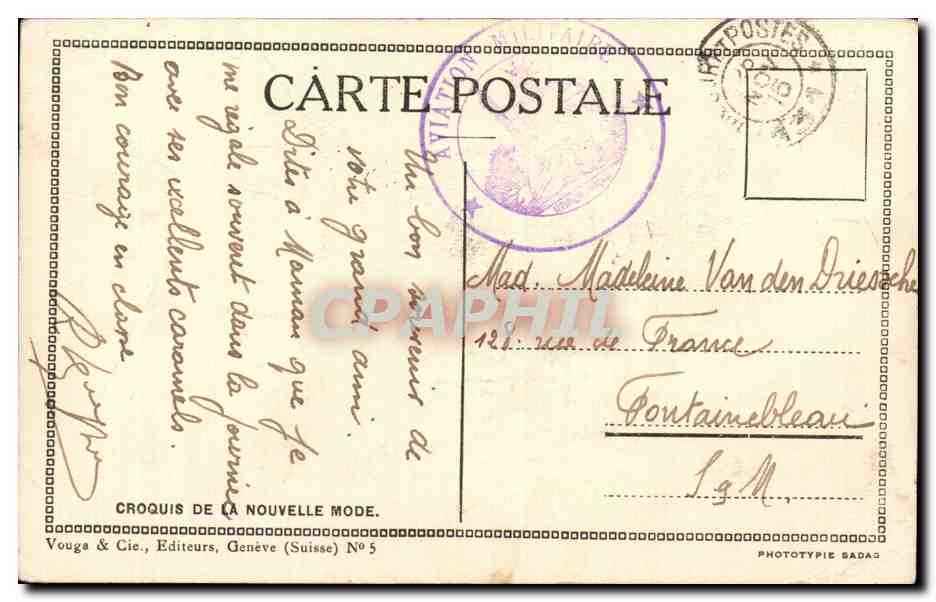 CARTE POSTALE
AVIATION MILITAIRE
POSTES
Un bon souvenir de
votre grand ami.
Dites à Maman que je
me régale souvent dans la journée
avec ses excellents caramels.
Bon courage en classe
Mad. Madeleine Van den Driessche
128. rue de France
Fontainebleau
S g M.
CPAPHIL
CROQUIS DE LA NOUVELLE MODE.
Vouga & Cie., Editeurs, Genève (Suisse) No 5
PHOTOTYPIE SADAG